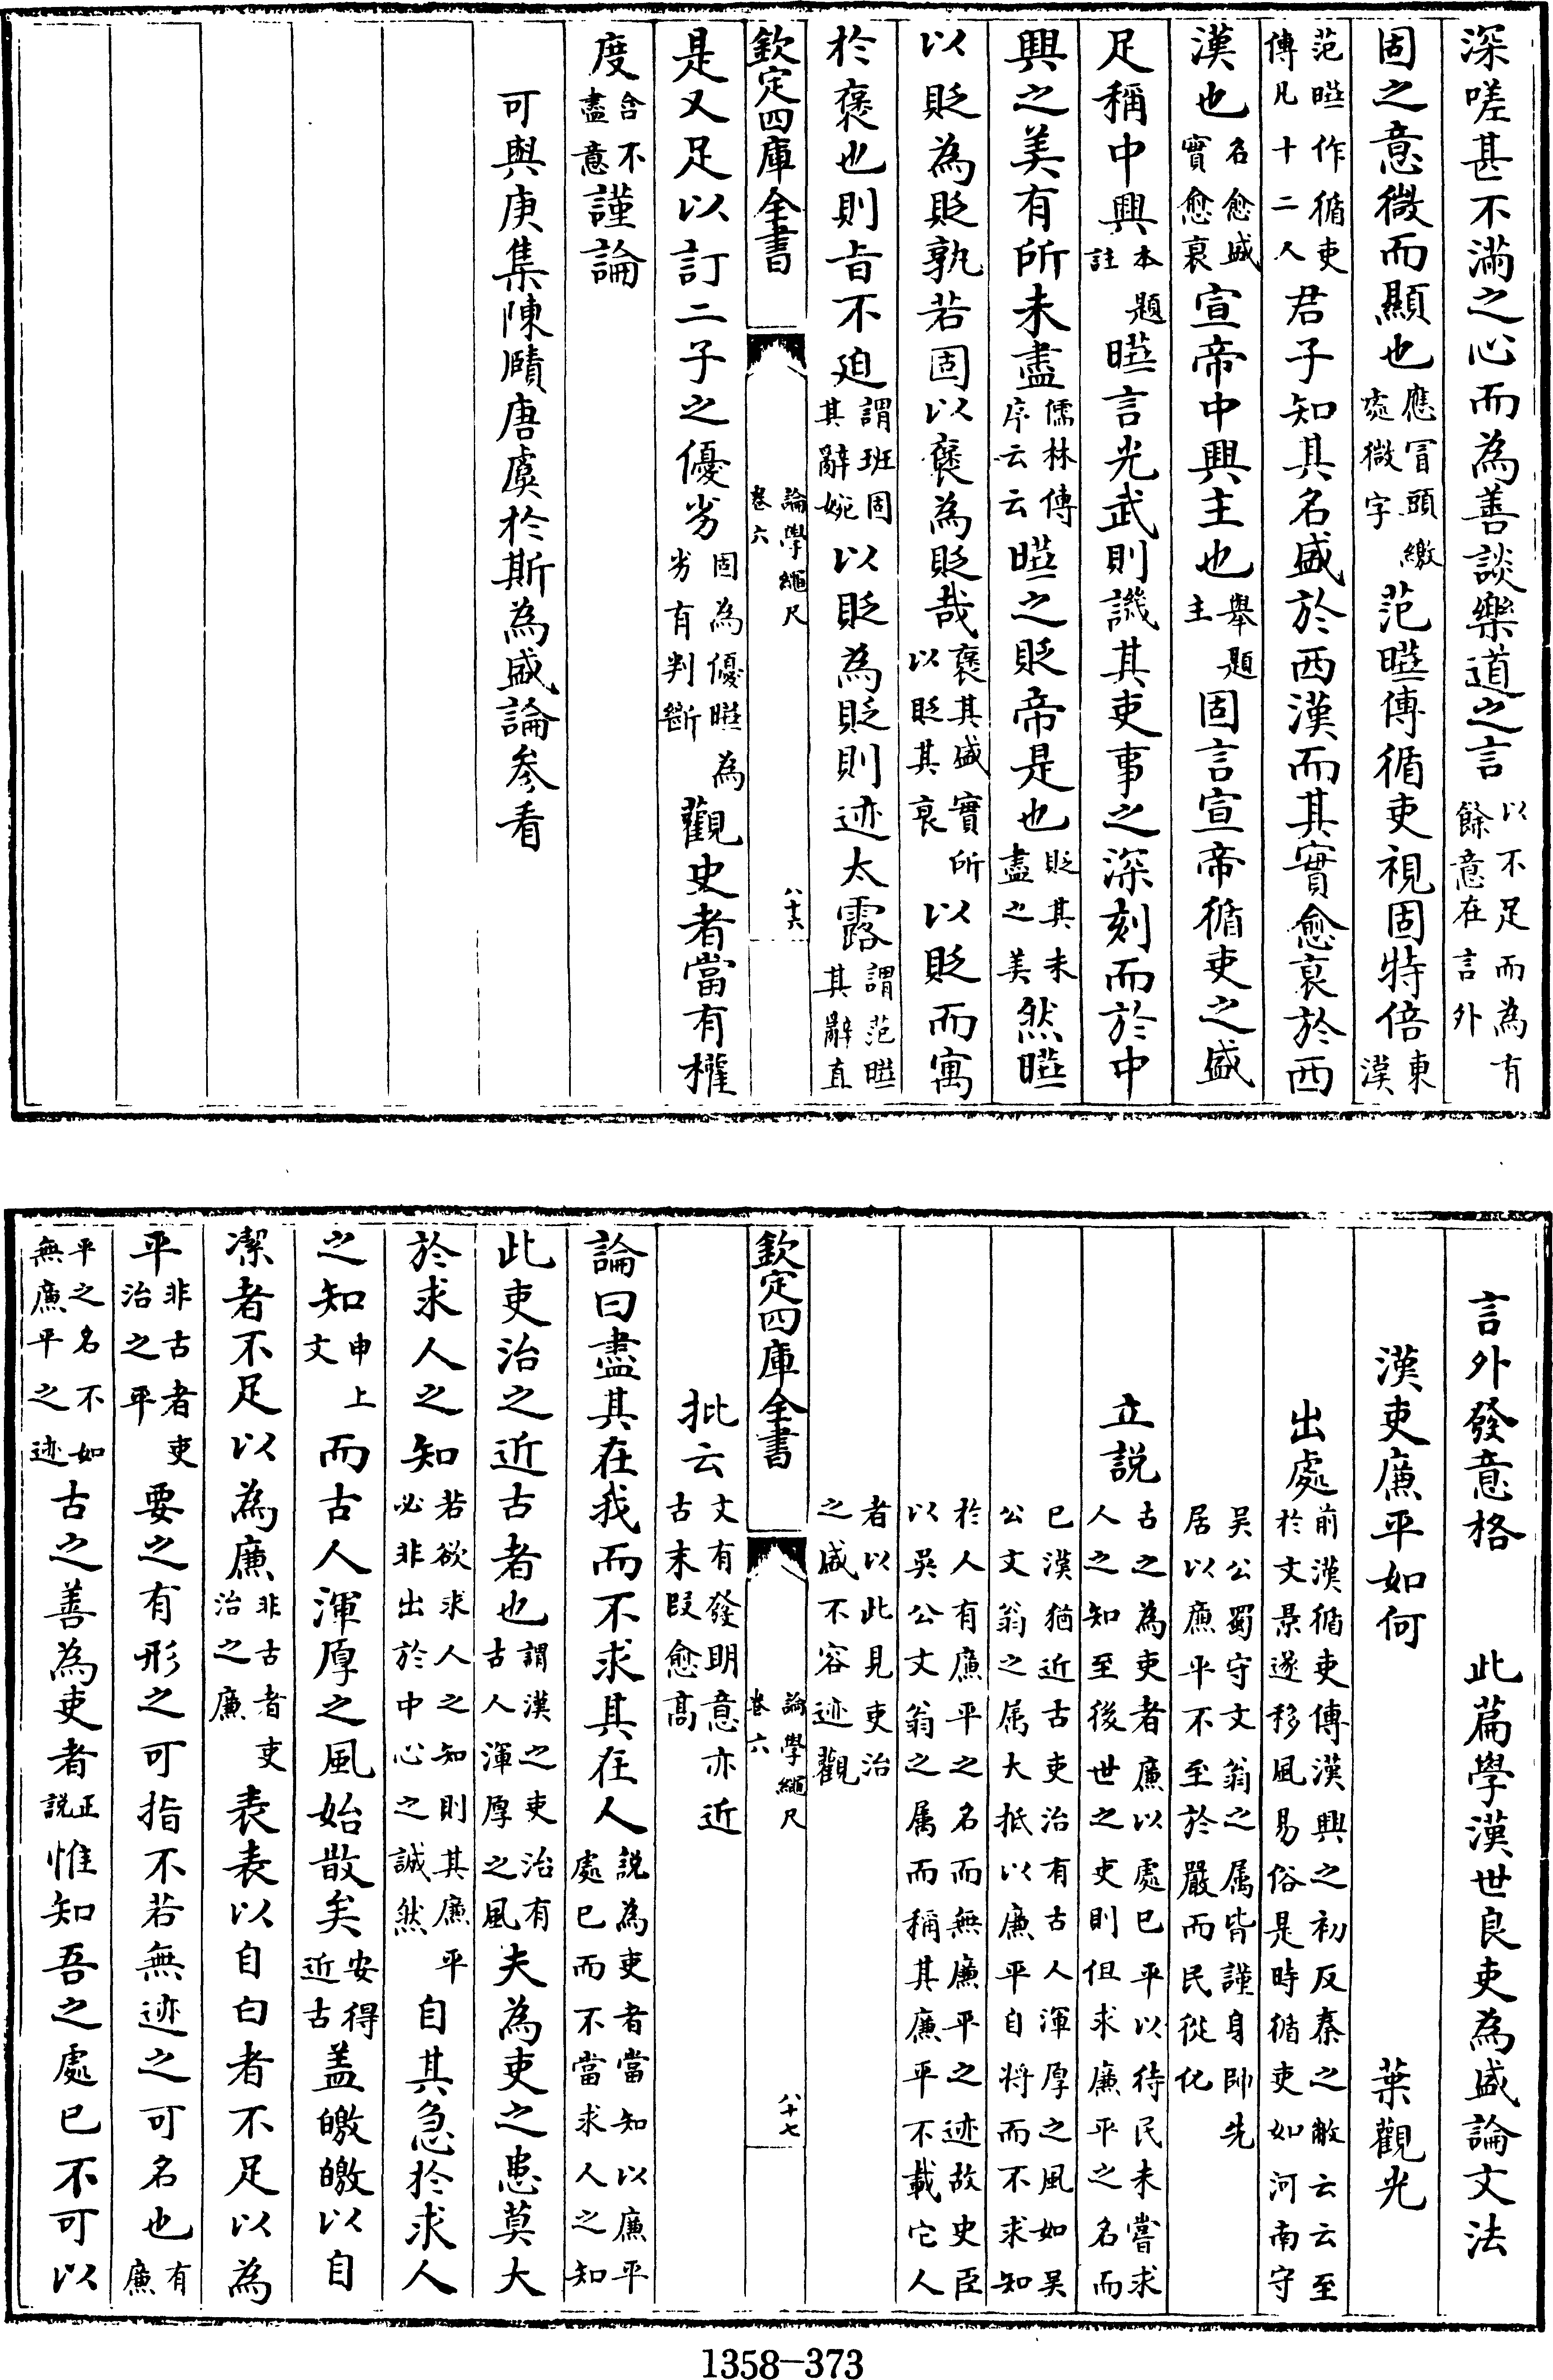 深嗟甚不滿之心而為善談樂道之言以不足而為有餘意在言外
固之意微而顯也應冒頭繳處微字范曄傳循吏視固特倍東漢
范曄作循吏傳凡十二人君子知其名盛於西漢而其實愈衰於西
漢也名愈盛實愈衰宣帝中興主也舉題主固言宣帝循吏之盛
足稱中興本題註曄言光武則譏其吏事之深刻而於中
興之美有所未盡儒林傳序云云曄之貶帝是也貶其未盡之美然曄
以貶為貶孰若固以褒為貶哉褒其盛實所以貶其衰以貶而寓
於褒也則旨不迫謂班固其辭婉以貶為貶則迹太露謂范曄其辭直
欽定四庫全書
論學繩尺
卷六
八十六
是又足以訂二子之優劣固為優曄為劣有判斷觀史者當有權
度含不盡意謹論
可與庚集陳賾唐虞於斯為盛論參看
言外發意格 此篇學漢世良吏為盛論文法
漢吏廉平如何 葉觀光
出處前漢循吏傳漢興之初反秦之敝云云至於文景遂移風易俗是時循吏如河南守
吳公蜀守文翁之屬皆謹身帥先居以廉平不至於嚴而民從化
立說古之為吏者廉以處已平以待民未嘗求人之知至後世之吏則但求廉平之名而
已漢猶近古吏治有古人渾厚之風如吳公文翁之屬大抵以廉平自將而不求知
於人有廉平之名而無廉平之迹故史臣以吳公文翁之屬而稱其廉平不載它人
者以此見吏治之盛不容迹觀
欽定四庫全書
論學繩尺
卷六
八十七
批云文有發明意亦近古末段愈高
論曰盡其在我而不求其在人說為吏者當知以廉平處已而不當求人之知
此吏治之近古者也謂漢之吏治有古人渾厚之風夫為吏之患莫大
於求人之知若欲求人之知則其廉平必非出於中心之誠然自其急於求人
之知申上文而古人渾厚之風始散矣安得近古盖皦皦以自
潔者不足以為廉非古者吏治之廉表表以自白者不足以為
平非古者吏治之平要之有形之可指不若無迹之可名也有廉
平之名不如無廉平之迹古之善為吏者正說惟知吾之處已不可以
1358—373